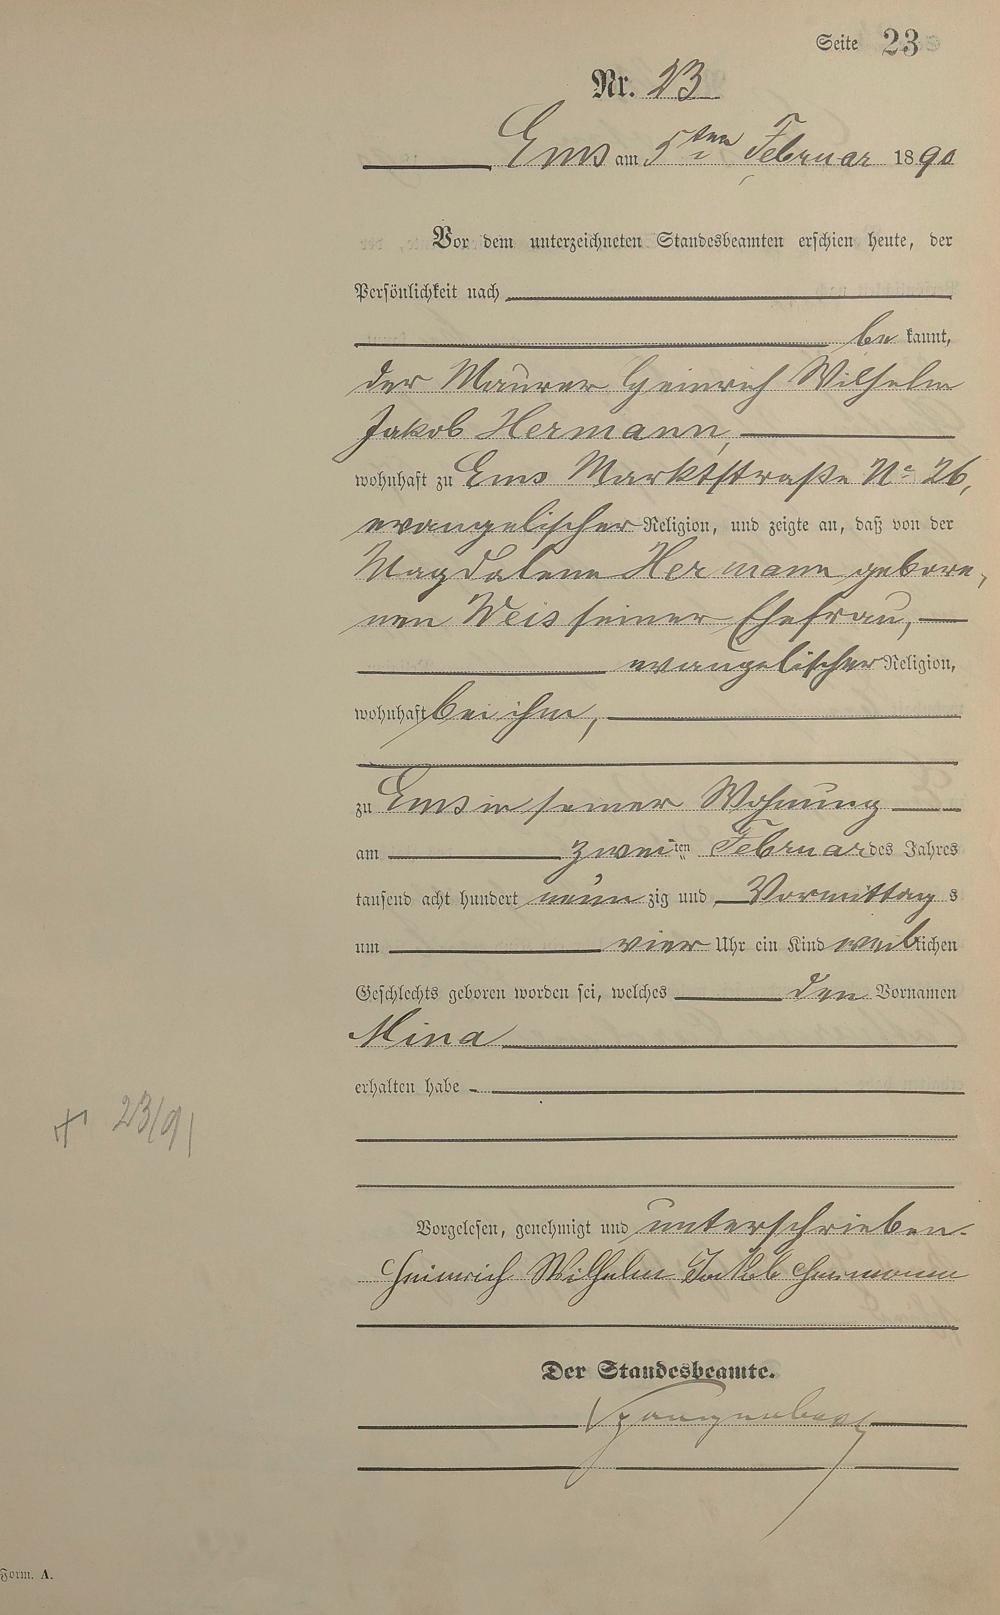 Seite 23
Nr. 23
Ems am 5ten Februar 1890
Vor dem unterzeichneten Standesbeamten erschien heute, der
Persönlichkeit nach
be kannt,
der Maurer Heinrich Wilhelm
Jakob Hermann,
wohnhaft zu Ems Marktstraße No 26,
evangelischer Religion, und zeigte an, daß von der
Magdalena Hermann gebore-
nen Weis seiner Ehefrau,
evangelischer Religion,
wohnhaft bei ihm,
zu Ems in seiner Wohnung
am zweiten Februar des Jahres
tausend acht hundert neun zig und Vormittag s
um vier Uhr ein Kind weiblichen
Geschlechts geboren worden sei, welches den Vornamen
Mina
erhalten habe
+ 23/91
Vorgelesen, genehmigt und unterschrieben.
Heinrich Wilhelm Jakob Hermann
Der Standesbeamte.
Form. A.